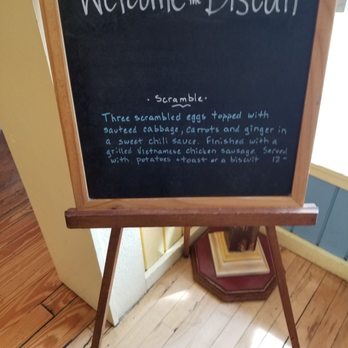 Welcome the Biscuit
• Scramble •
Three scrambled eggs topped with
sauteed cabbage, carrots and ginger in
a sweet chili sauce. Finished with a
grilled Vietnamese chicken sausage. Served
with potatoes + toast or a biscuit 12